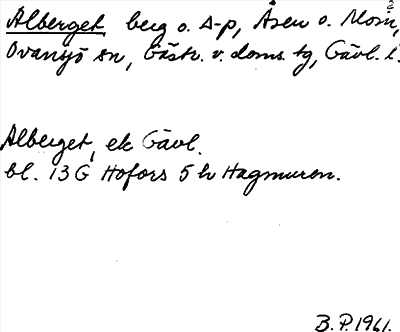 Alberget, berg o. s-p, Åsen o. Mom,
Ovanyö sn, Gästr. v. doms. tg, Gävl. l.
Alberget, ek Gävl.
bl. 13 G Hofors 5 h Hagmuren.
B. P. 1961.